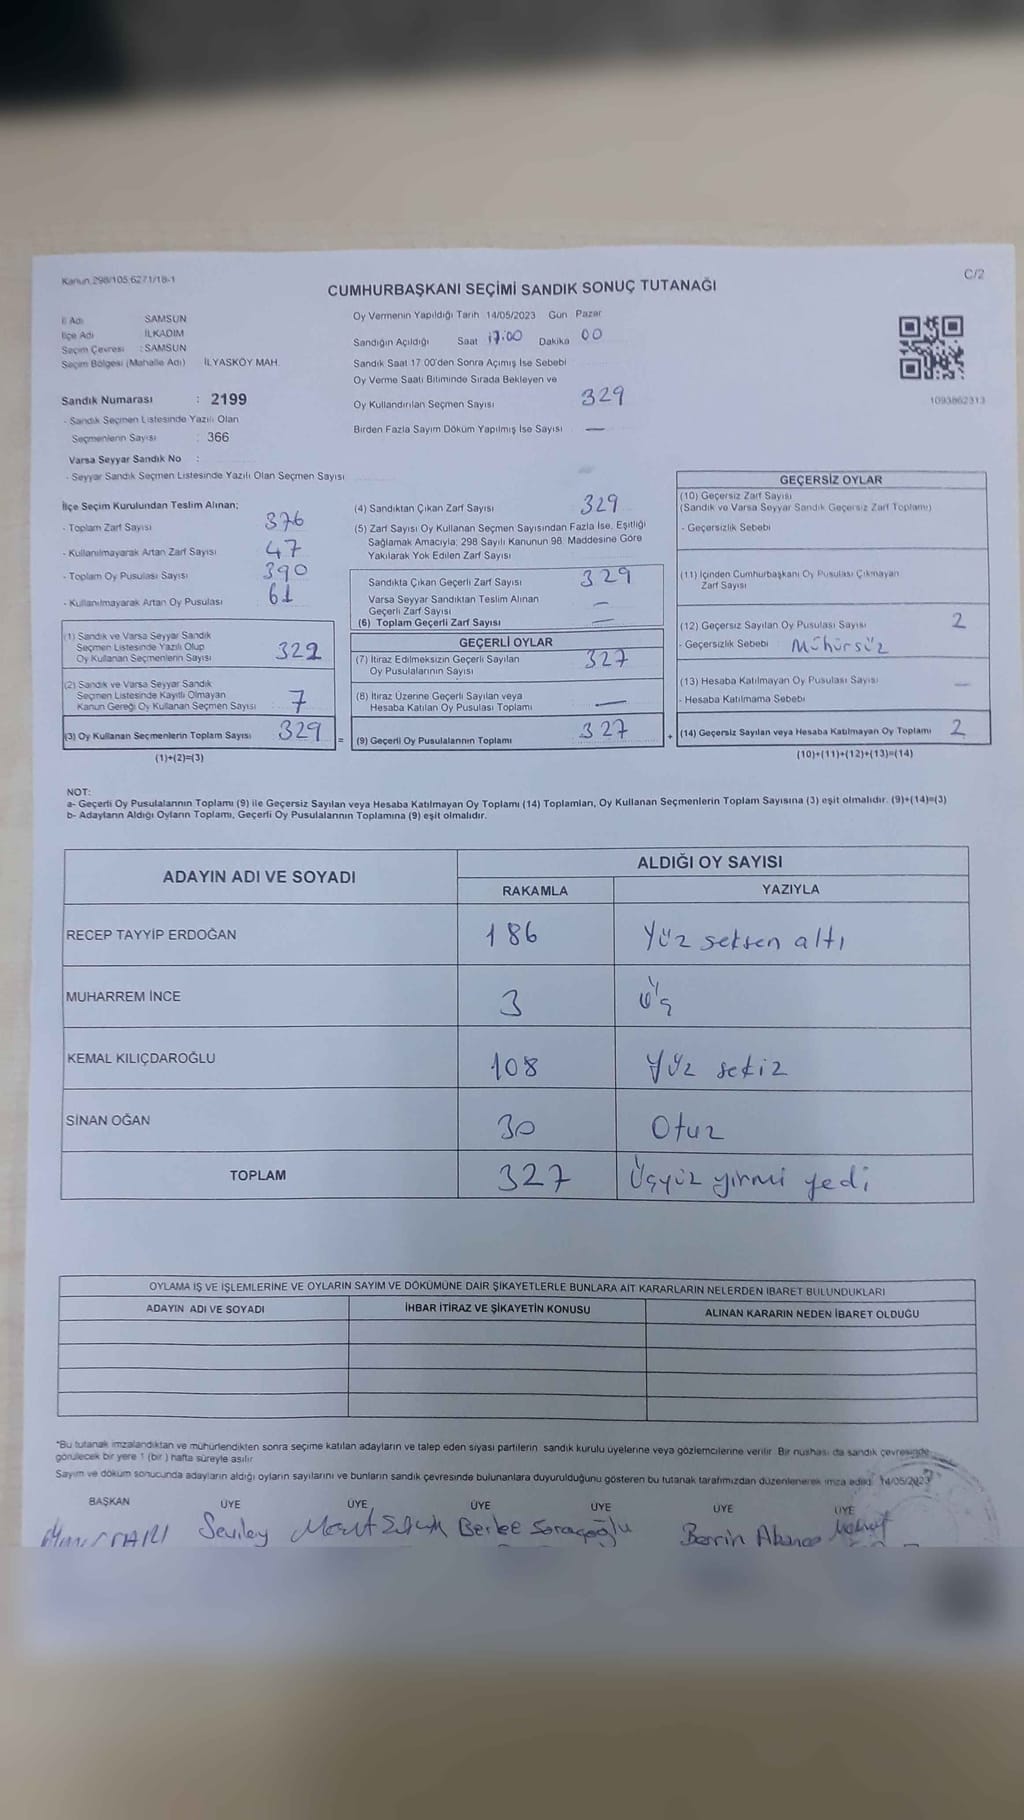 Kanun.298/105.6271/18-1
C/2
CUMHURBAŞKANI SEÇİMİ SANDIK SONUÇ TUTANAĞI
İl Adı SAMSUN
İlçe Adı İLKADIM
Seçim Çevresi : SAMSUN
Seçim Bölgesi (Mahalle Adı) İLYASKÖY MAH.
Sandık Numarası : 2199
- Sandık Seçmen Listesinde Yazılı Olan
Seçmenlerin Sayısı : 366
Varsa Seyyar Sandık No :
- Seyyar Sandık Seçmen Listesinde Yazılı Olan Seçmen Sayısı
Oy Vermenin Yapıldığı Tarih 14/05/2023 Gün Pazar
Sandığın Açıldığı Saat 17:00 Dakika 00
Sandık Saat 17 00'den Sonra Açımış İse Sebebi
Oy Verme Saati Bitiminde Sırada Bekleyen ve
Oy Kullandırılan Seçmen Sayısı 329
Birden Fazla Sayım Döküm Yapılmış İse Sayısı —
1093862313
İlçe Seçim Kurulundan Teslim Alınan;
- Toplam Zarf Sayısı 376
- Kullanılmayarak Artan Zarf Sayısı 47
- Toplam Oy Pusulası Sayısı 390
- Kullanılmayarak Artan Oy Pusulası 61
(1) Sandık ve Varsa Seyyar Sandık
Seçmen Listesinde Yazılı Olup
Oy Kullanan Seçmenlerin Sayısı 322
(2) Sandık ve Varsa Seyyar Sandık
Seçmen Listesinde Kayıtlı Olmayan
Kanun Gereği Oy Kullanan Seçmen Sayısı 7
(3) Oy Kullanan Seçmenlerin Toplam Sayısı 329 =
(1)+(2)=(3)
(4) Sandıktan Çıkan Zarf Sayısı 329
(5) Zarf Sayısı Oy Kullanan Seçmen Sayısından Fazla İse, Eşitliği
Sağlamak Amacıyla; 298 Sayılı Kanunun 98. Maddesine Göre
Yakılarak Yok Edilen Zarf Sayısı
Sandıkta Çıkan Geçerli Zarf Sayısı 329
Varsa Seyyar Sandıktan Teslim Alınan
Geçerli Zarf Sayısı —
(6) Toplam Geçerli Zarf Sayısı —
GEÇERLİ OYLAR
(7) İtiraz Edilmeksizin Geçerli Sayılan
Oy Pusulalarının Sayısı 327
(8) İtiraz Üzerine Geçerli Sayılan veya
Hesaba Katılan Oy Pusulası Toplamı —
(9) Geçerli Oy Pusulalarının Toplamı 327 +
GEÇERSİZ OYLAR
(10) Geçersiz Zarf Sayısı
(Sandık ve Varsa Seyyar Sandık Geçersiz Zarf Toplamı)
- Geçersizlik Sebebi
(11) İçinden Cumhurbaşkanı Oy Pusulası Çıkmayan
Zarf Sayısı
(12) Geçersiz Sayılan Oy Pusulası Sayısı 2
- Geçersizlik Sebebi : Mühürsüz
(13) Hesaba Katılmayan Oy Pusulası Sayısı —
- Hesaba Katılmama Sebebi
(14) Geçersiz Sayılan veya Hesaba Katılmayan Oy Toplamı 2
(10)+(11)+(12)+(13)=(14)
NOT:
a- Geçerli Oy Pusulalarının Toplamı (9) ile Geçersiz Sayılan veya Hesaba Katılmayan Oy Toplamı (14) Toplamları, Oy Kullanan Seçmenlerin Toplam Sayısına (3) eşit olmalıdır. (9)+(14)=(3)
b- Adayların Aldığı Oyların Toplamı, Geçerli Oy Pusulalarının Toplamına (9) eşit olmalıdır.
ADAYIN ADI VE SOYADI
ALDIĞI OY SAYISI
RAKAMLA YAZIYLA
RECEP TAYYİP ERDOĞAN 186 Yüz seksen altı
MUHARREM İNCE 3 üç
KEMAL KILIÇDAROĞLU 108 Yüz sekiz
SİNAN OĞAN 30 Otuz
TOPLAM 327 Üçyüz yirmi yedi
OYLAMA İŞ VE İŞLEMLERİNE VE OYLARIN SAYIM VE DÖKÜMÜNE DAİR ŞİKAYETLERLE BUNLARA AİT KARARLARIN NELERDEN İBARET BULUNDUKLARI
ADAYIN ADI VE SOYADI İHBAR İTİRAZ VE ŞİKAYETİN KONUSU ALINAN KARARIN NEDEN İBARET OLDUĞU
*Bu tutanak imzalandıktan ve mühürlendikten sonra seçime katılan adayların ve talep eden siyasi partilerin sandık kurulu üyelerine veya gözlemcilerine verilir. Bir nushası da sandık çevresinde
görülecek bir yere 1 (bir ) hafta süreyle asılır
Sayım ve döküm sonucunda adayların aldığı oyların sayılarını ve bunların sandık çevresinde bulunanlara duyurulduğunu gösteren bu tutanak tarafımızdan düzenlenerek imza edildi 14/05/2023
BAŞKAN ÜYE ÜYE ÜYE ÜYE ÜYE ÜYE
Berke Saraçoğlu Berrin